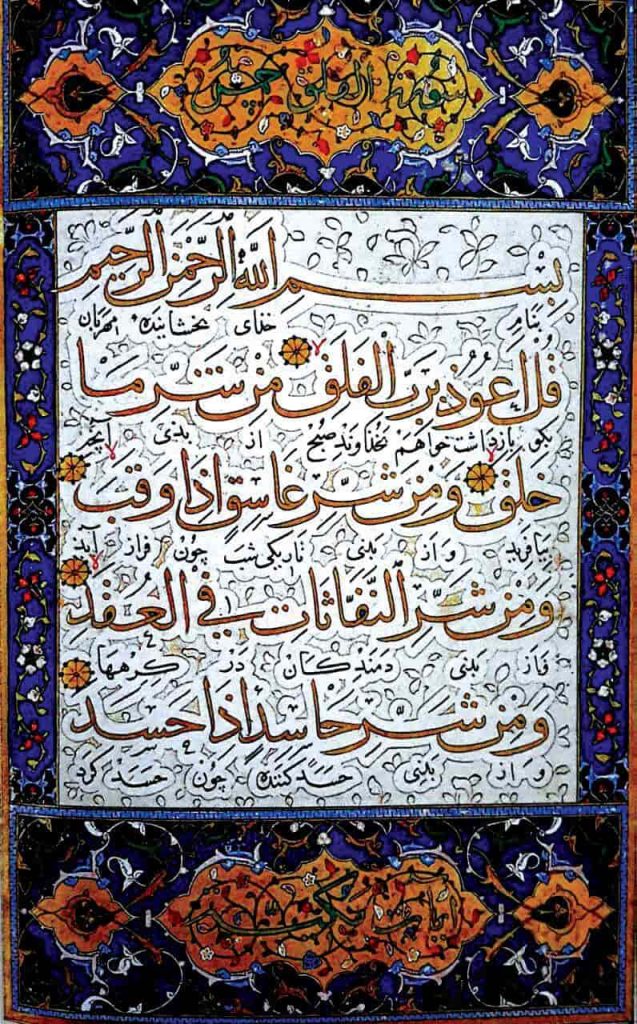 سورة الفلق خمس
بِسْمِ اللَّهِ الرَّحْمَٰنِ الرَّحِيمِ
بنام خدای بخشاینده مهربان
قُلْ اَعُوذُ بِرَبِّ الْفَلَقِ مِنْ شَرِّ مَا
بکو بازداشت خواهم بخداوند صبح از بدی آنچه
خَلَقَ وَمِنْ شَرِّ غَاسِقٍ اِذَا وَقَبَ
بیافرید و از بدی تاریکی شب چون فراز آید
وَمِنْ شَرِّ النَّفَّاثَاتِ فِي الْعُقَدِ
و از بدی دمندکان در کرهها
وَمِنْ شَرِّ حَاسِدٍ اِذَا حَسَدَ
و از بدی حسد کننده چون حسد کرد
آیات مکیة